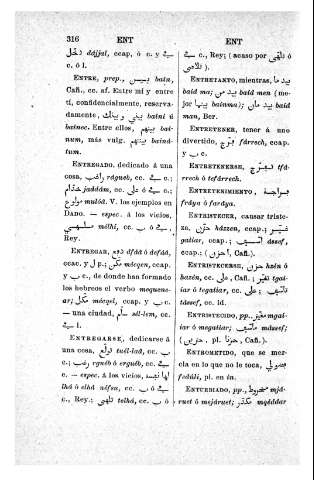 316 ENT
ENT
دخل dájjal, ccap, ó c. y في
c. ó l.
ENTRE, prep., بين bain,
Cañ., cc. af. Entre mí y entre
ti, confidencialmente, reserva-
damente, بيني وبينك baini ú
bainec. Entre ellos, بينهم bai-
num, más vulg. بينهم bainá-
tum.
ENTREGADO, dedicado á una
cosa, راغب rágueb, cc. في c.;
jaddám, cc. على ó في c.;
مولوع mulóâ. V. los ejemplos en
DADO. — espec. á los vicios,
móthi, cc. ب ó في c.,
Rey.
ENTREGAR, دفع dfáâ ó defáâ,
ccac. y l p.; مكن mécqen, ccap.
y ب c., de donde han formado
los hebreos el verbo mequene-
ar; مكل mécqel, ccap. y ب c.
— una ciudad, سلم sél-lem, cc.
في l.
ENTREGARSE, dedicarse á
una cosa, تولع tuél-laâ, cc. ب
c.; رغب rguéb ó erguéb, cc. في
c. — espec. á los vicios,
lhá ó elhá néfsu, cc. ب ó في
c., Rey.; تلهى telhá, cc. ب ó
في c., Rey; (acaso por تلقى ó
تلاصى).
ENTRETANTO, mientras, بيد ما
baid ma; بيد من baid men (me-
jor بينما bainma); بيد مان baid
man, Ber.
ENTRETENER, tener á uno
divertido, فرّج fárrech, ccap.
y ب c.
ENTRETENERSE, تفرّج tfá-
rrech ó tefárrech.
ENTRETENIMIENTO, فراجة
fráya ó faráya.
ENTRISTECER, causar triste-
za, حزن házzen, ccap.; غيّر
gaíiar, ccap.; أسّف ássef,
ccap.: (حزن, Cañ.).
ENTRISTECERSE, حزن hzén ó
házen, cc. على, Cañ.; تغيّر tgaí-
iar ó tegaíiar, cc. على; تأسّف
tássef, cc. id.
ENTRISTECIDO, pp., مغيّر mgaí-
iar ó megaíiar; مأسّف mássef;
(حزين, pl. حزنا, Cañ.).
ENTROMETIDO, que se mez-
cla en lo que no le toca, فضولي
fodúli, pl. en in.
ENTURBIADO, pp., مخروط mjá-
ruet ó mejáruet; مكدّر mqéddar